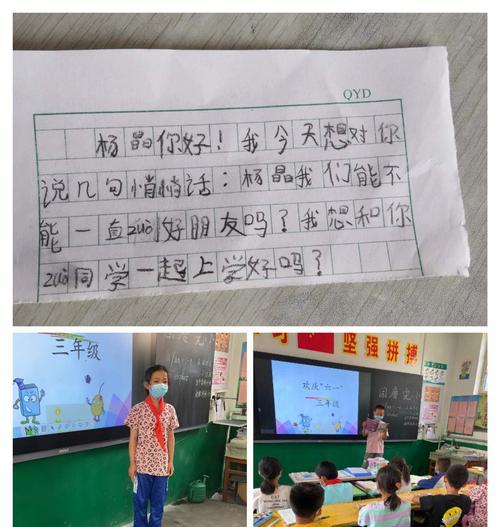 QYD
杨晶你好！我今天想对你
说几句悄悄话：杨晶我们能不
能一直zuò好朋友吗？我想和你
zuò同学一起上学好吗？
三年级
坚强拼搏
欢庆“六一”
三年级